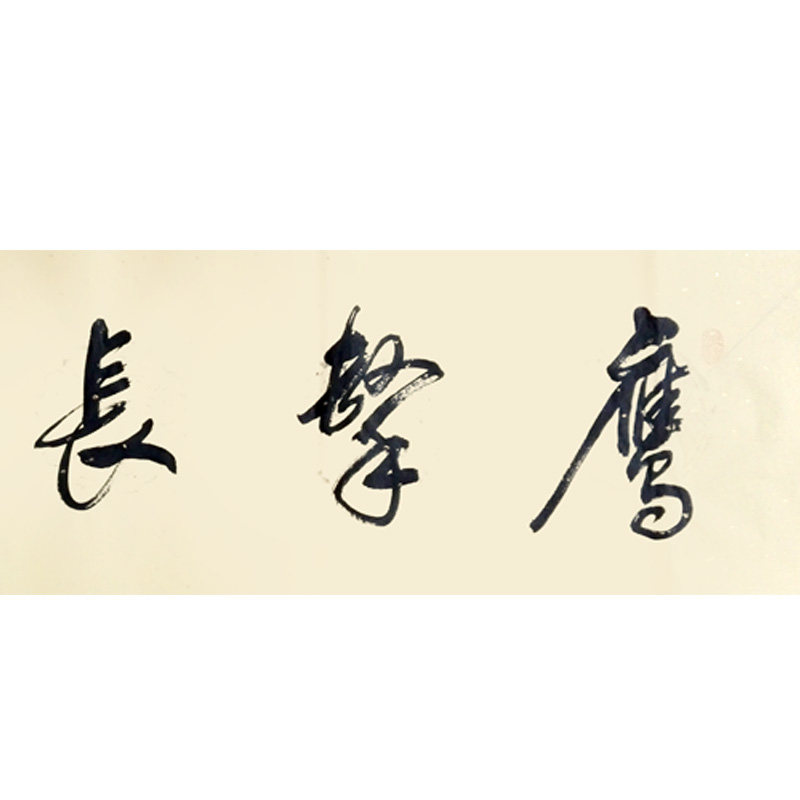 鷹擊長